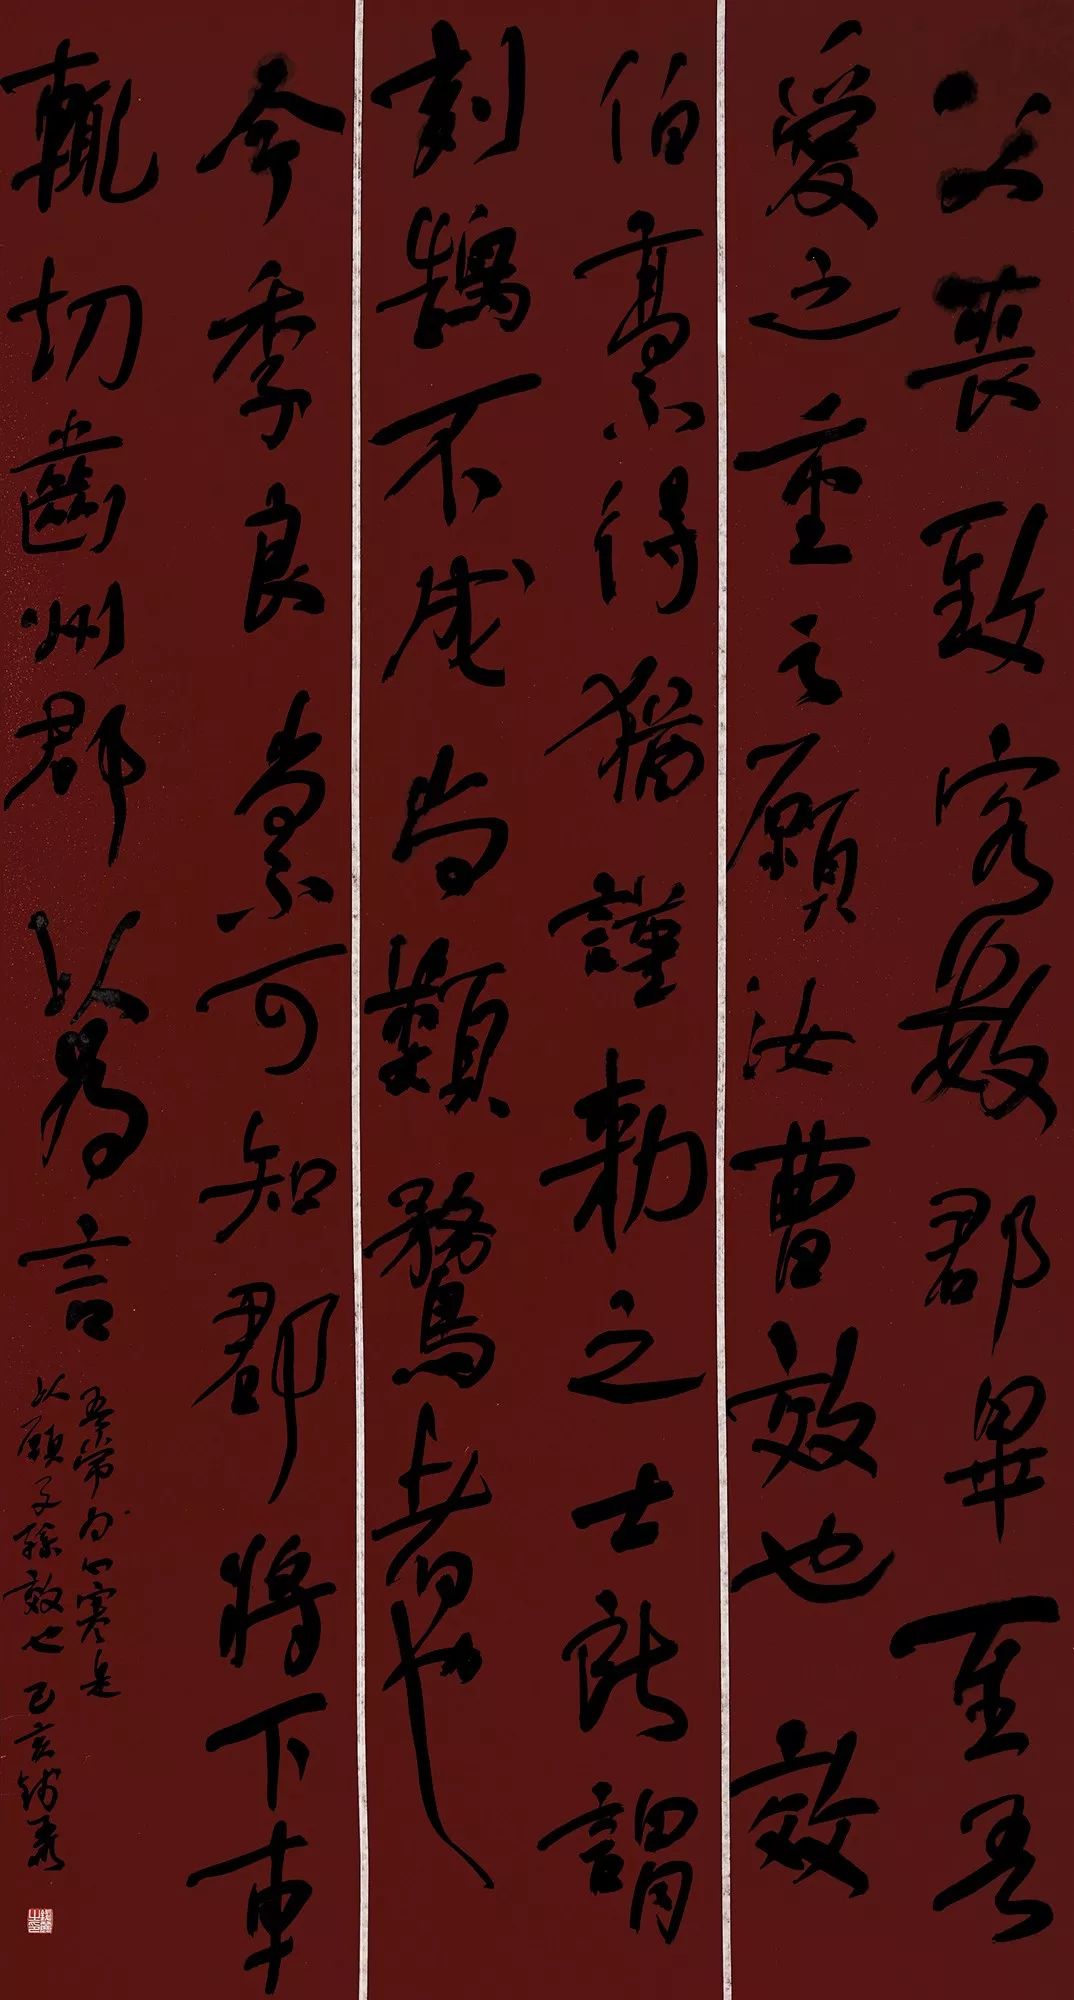 父喪致客數郡畢至吾
愛之重之願汝曹效也效
伯高不得猶謹勅之士所謂
刻鵠不成尚類鶩者也
今季良尚未可知郡將下車
輒切齒州郡以為言
吾常為心寒是
以願子孫效也 己亥